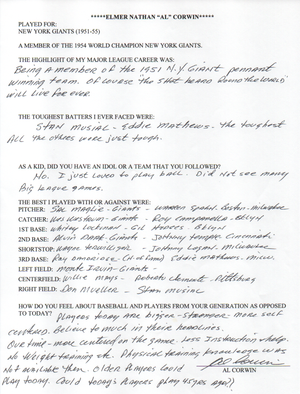 *****ELMER NATHAN "AL" CORWIN*****
PLAYED FOR:
NEW YORK GIANTS (1951-55)
A MEMBER OF THE 1954 WORLD CHAMPION NEW YORK GIANTS.
THE HIGHLIGHT OF MY MAJOR LEAGUE CAREER WAS:
Being a member of the 1951 N.Y. Giant pennant
winning team. Of course the shot heard round the world
will live for ever
THE TOUGHEST BATTERS I EVER FACED WERE:
Stan Musial - Eddie Mathews. The toughest
All the others were just tough.
AS A KID, DID YOU HAVE AN IDOL OR A TEAM THAT YOU FOLLOWED?
No. I just loved to play ball. Did not see many
Big League games.
THE BEST I PLAYED WITH OR AGAINST WERE:
PITCHER: Sal Maglie - Giants - Warren Spahn. Boston. Milwaukee
CATCHER: Wes Westrum - Giants - Roy Campanella - Bklyn
1ST BASE: Whitey Lockman - Gil Hodges Bklyn
2ND BASE: Alvin Dark - Giants - Johnny Temple Cincinnati
SHORTSTOP: Johnny Logan. Milwaukee
3RD BASE: Ray (H of Fame) Eddie Mathews. Milw.
LEFT FIELD: Monte Irvin - Giants
CENTERFIELD: Willie Mays - Roberto Clemente - Pittsburg
RIGHT FIELD: Don Mueller - Stan Musial
HOW DO YOU FEEL ABOUT BASEBALL AND PLAYERS FROM YOUR GENERATION AS OPPOSED
TO TODAY? Players today are bigger - stronger - more self
centered. Believe to much in their headlines.
Our time - more centered on the game - less instruction & help.
No weight training etc. Physical training knowledge was
Not available then. Older players could
Play today. Could today's players play 45 yrs ago?)
Al Corwin
AL CORWIN